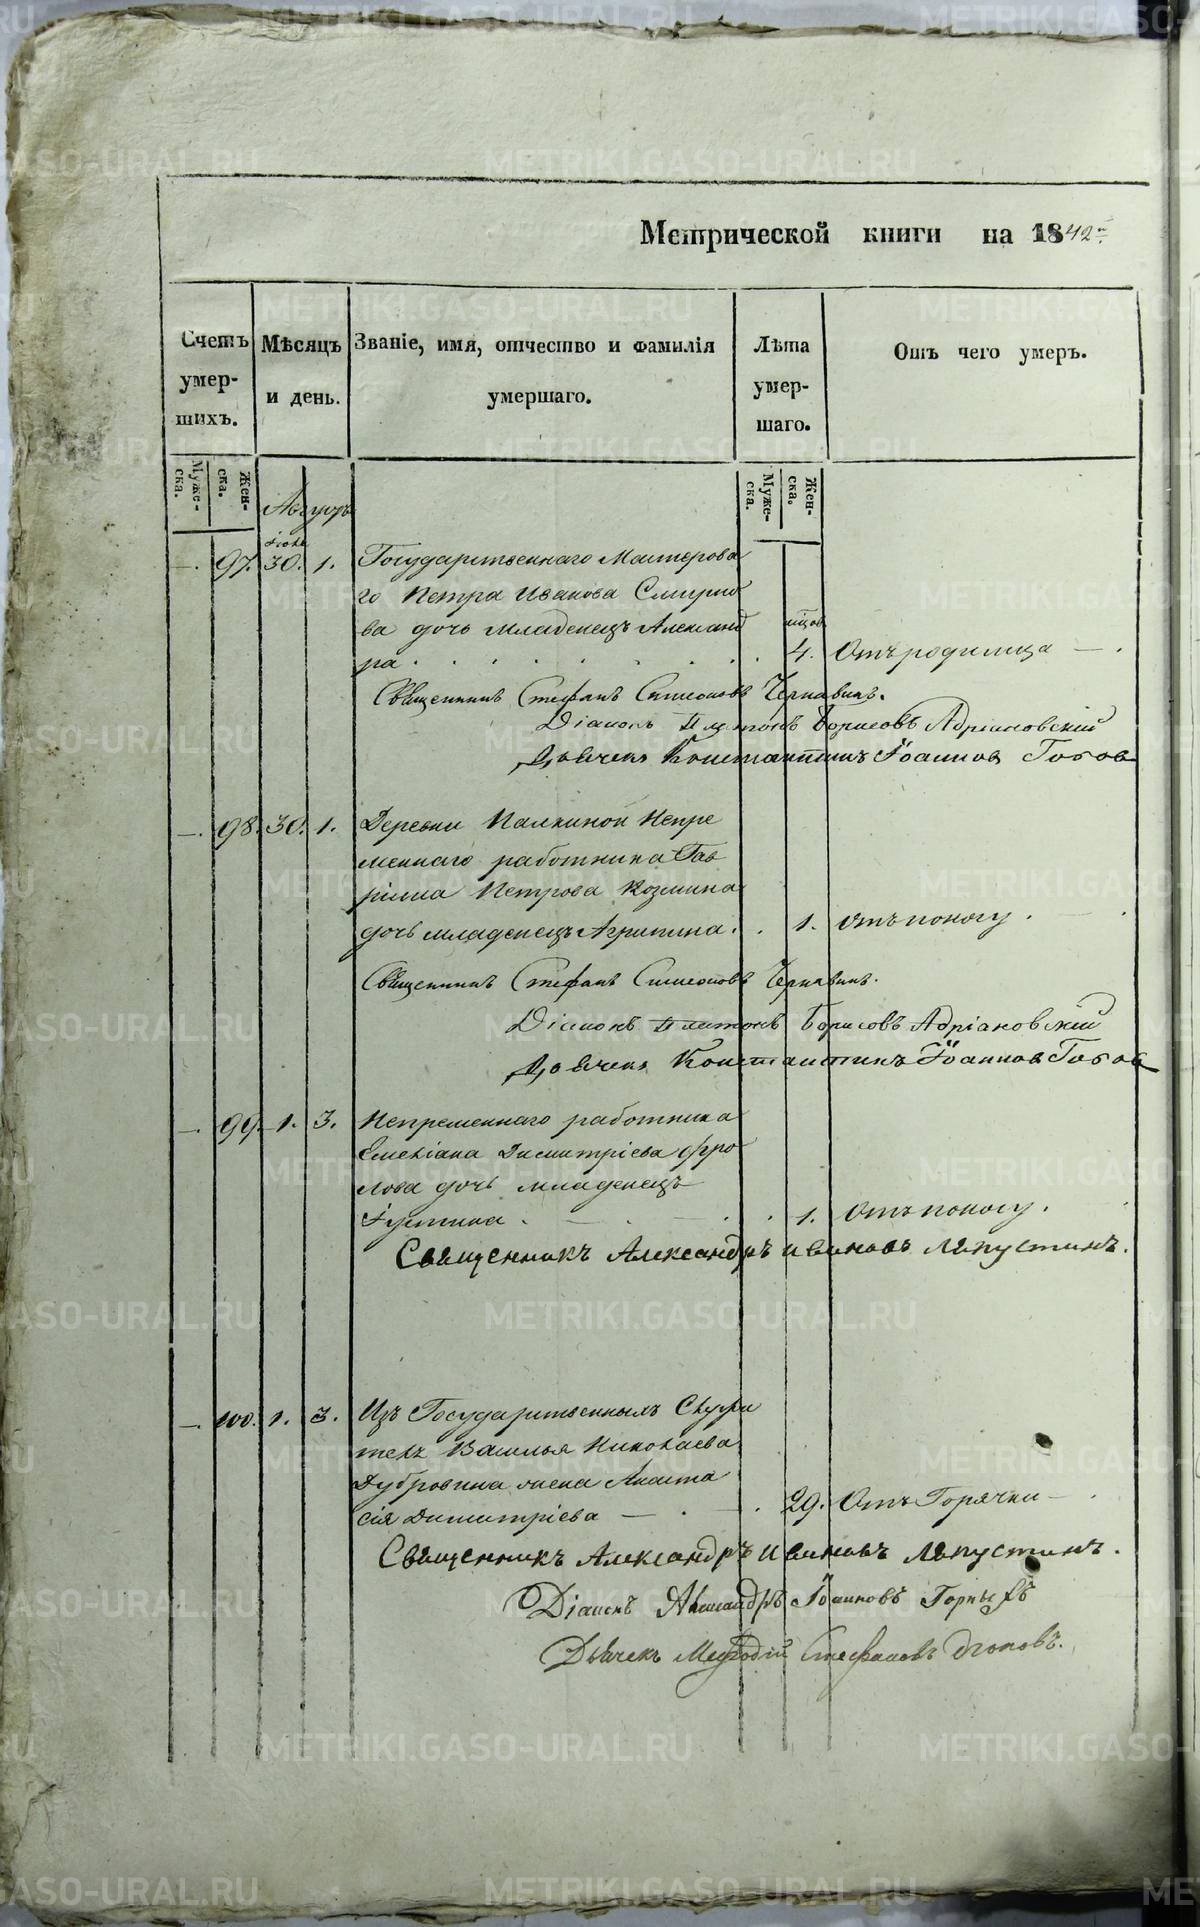 Метрической книги на 1842й
Счетъ умер-шихъ.
Мѣсяцъ и день.
Званіе, имя, отчество и фамилія умершаго.
Лѣта умер-шаго.
Отъ чего умеръ.
Муже-ска.
Жен-ска.
Муже-ска.
Жен-ска.
Августъ
97. 30. 1. Государственнаго Мастерова
го Петра Иванова Смирно
ва дочь младенецъ Александ
ра 4. Отъ родимца
Священникъ Стефанъ Симеоновъ Чернавинъ.
Діаконъ Платонъ Борисовъ Адріановскій
Дьячекъ Константинъ Іоанновъ
98. 30. 1. Деревни Палкиной Непре
меннаго работника Гав
ріила Петрова Козмина
дочь младенецъ Агрипина. 1. Отъ поносу.
Священникъ Стефанъ Симеоновъ Чернавинъ.
Діаконъ Платонъ Борисовъ Адріановскій
Дьячекъ Константинъ Іоанновъ
99. 1. 3. Непременнаго работника
Емеліана Димитріева Фро
лова дочь младенецъ
Іустина 1. Отъ поносу.
Священникъ Александръ Ивановъ Лапустинъ.
100. 1. 3. Изъ Государственныхъ Служи
тель Василья Николаева
Дубровина жена Анаста
сія Димитріева 29. Отъ Горячки
Священникъ Александръ Ивановъ Лапустинъ.
Діаконъ Александръ Іоанновъ Горныхъ
Дьячекъ Мефодій Стефановъ